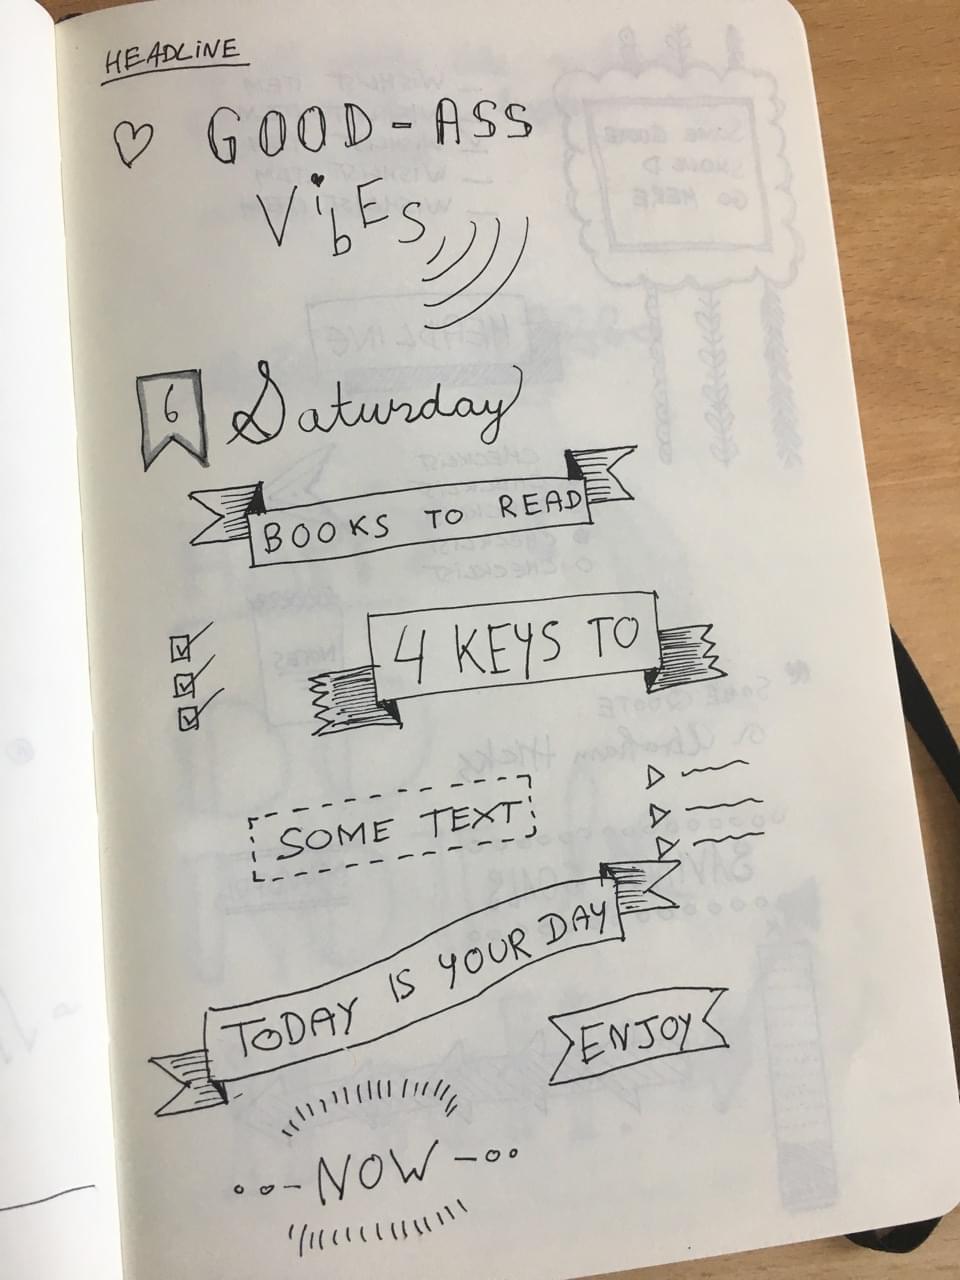 HEADLiNE
GOOD-ASS
VibES
6 Saturday
BOOKS TO READ
4 KEYS TO
SOME TEXT
TODAY IS YOUR DAY
ENJOY
NOW